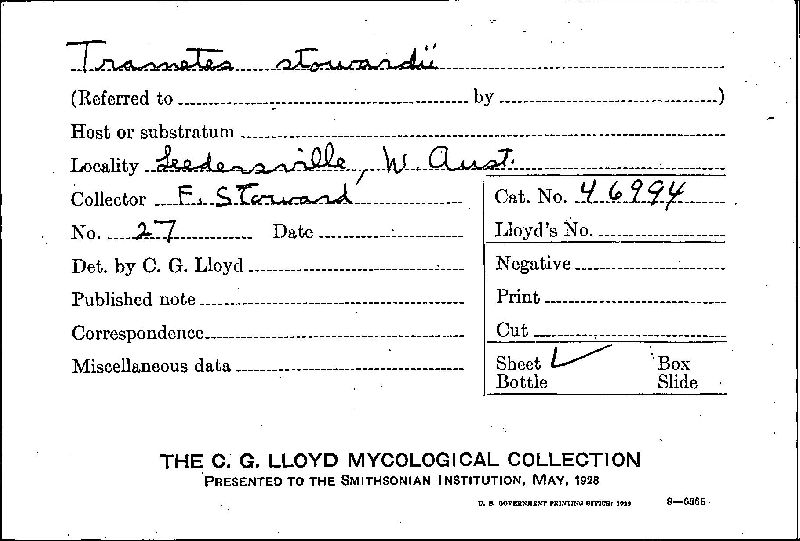 Trametes stowardii
(Referred to by )
Host or substratum
Locality Leedersville, W. Aust.
Collector F. Stoward
No. 27 Date
Det. by C. G. Lloyd
Published note
Correspondence
Miscellaneous data
Cat. No. 46994
Lloyd's No.
Negative
Print
Cut
Sheet ✓ Box
Bottle Slide
THE C. G. LLOYD MYCOLOGICAL COLLECTION
PRESENTED TO THE SMITHSONIAN INSTITUTION, MAY, 1928
U. S. GOVERNMENT PRINTING OFFICE: 1929 8—6365